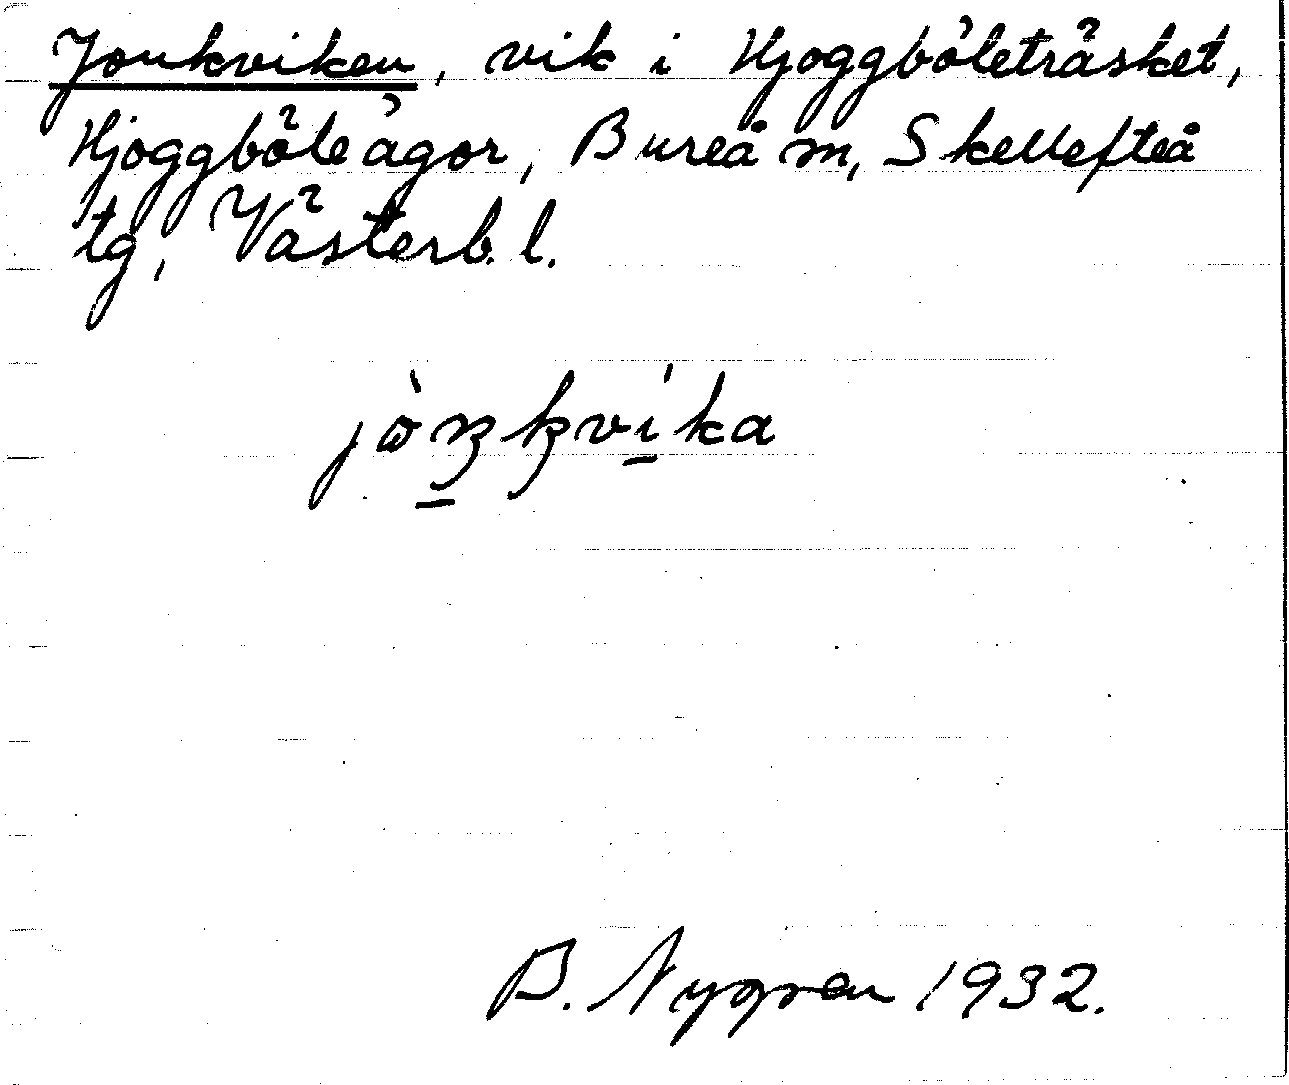 Jonkviken, vik i Hjoggböleträsket,
Hjoggböle ägor, Bureå sn, Skellefteå
tg, Västerb. l.
B. Nygren 1932.